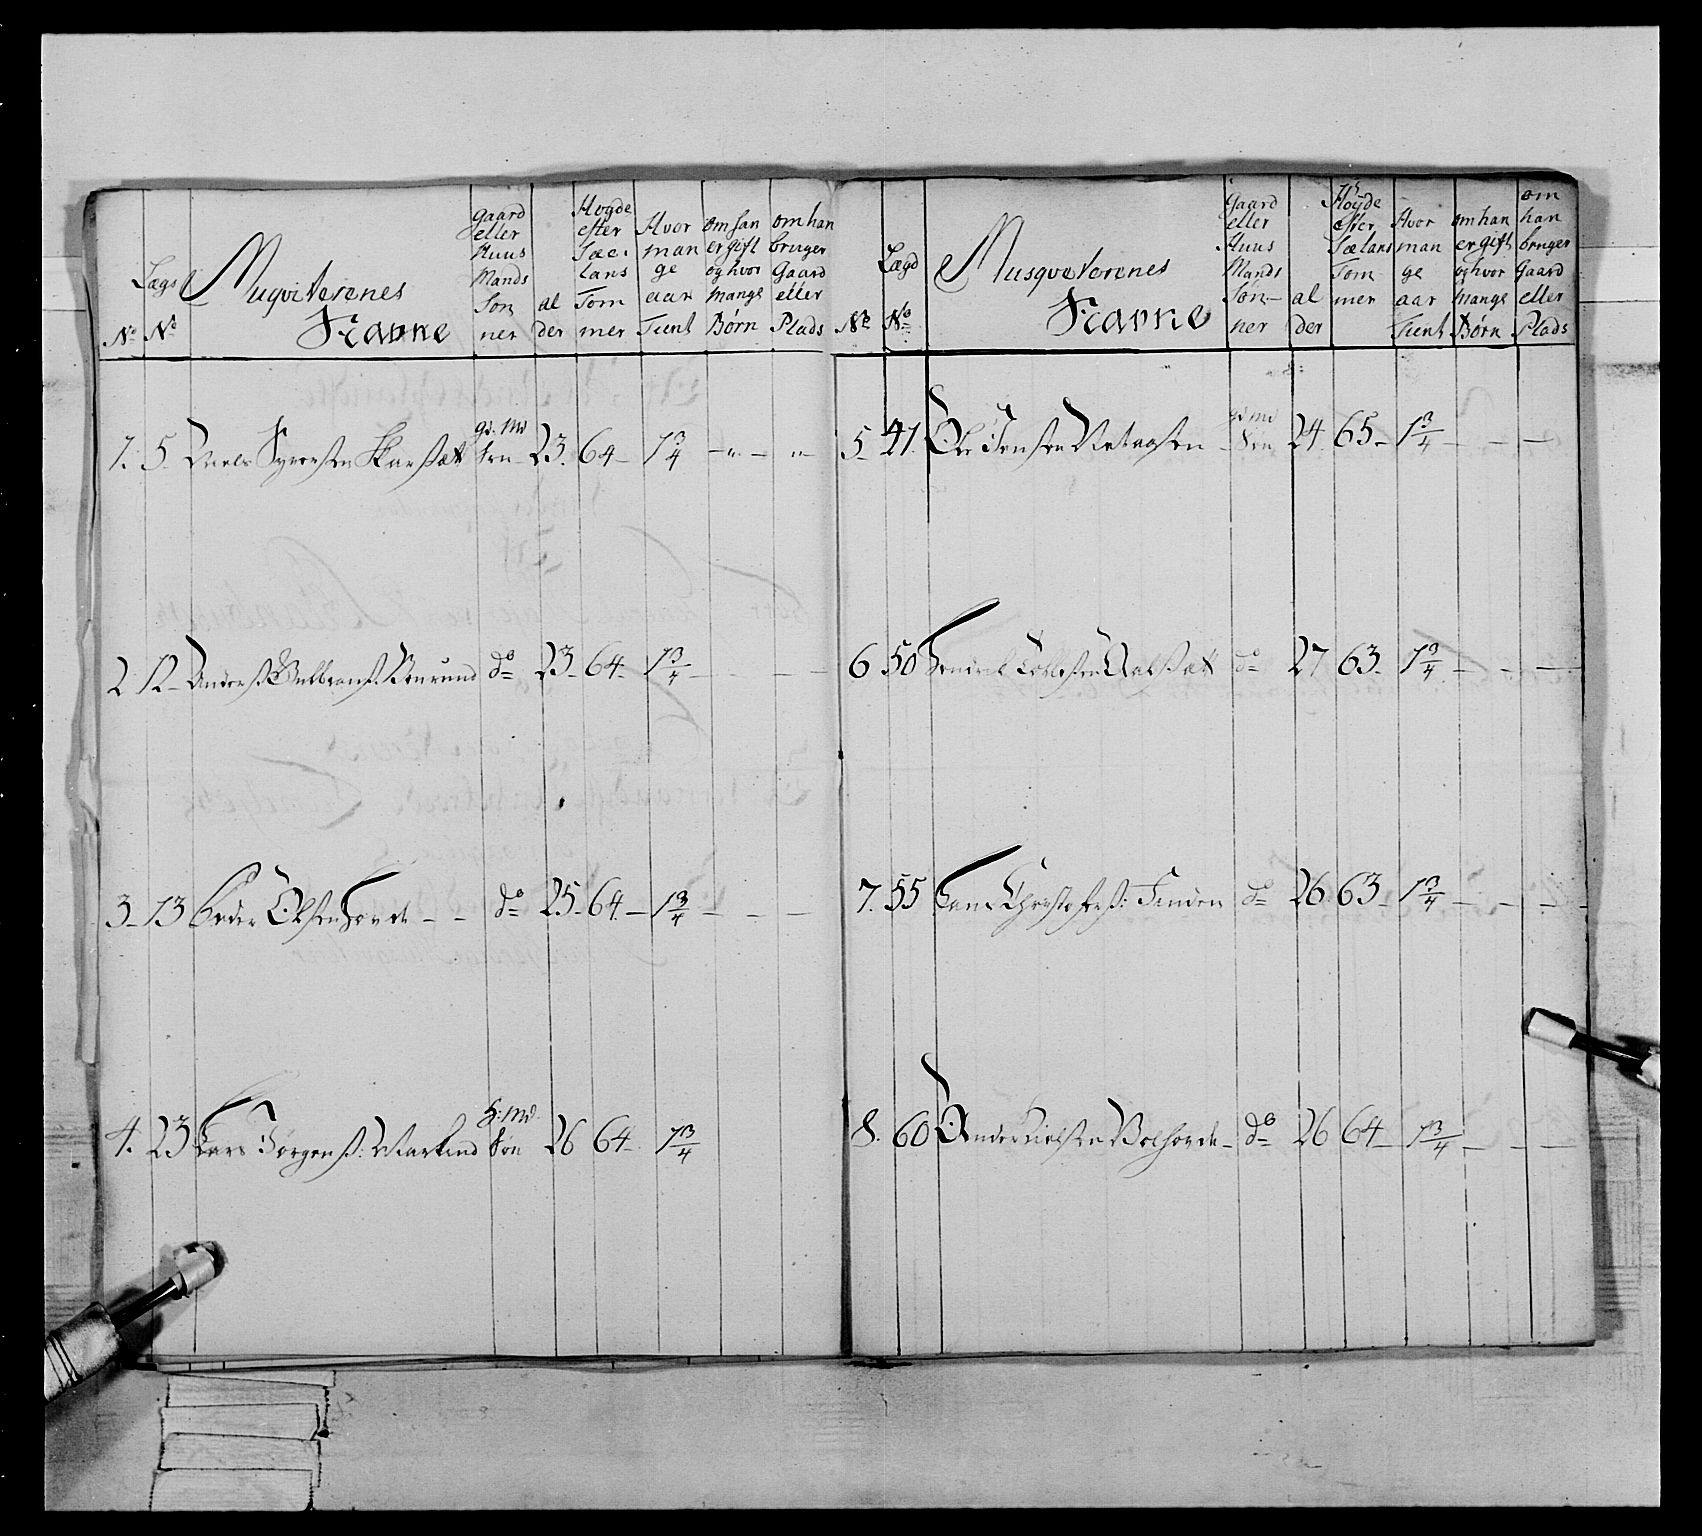 No
Lægs No
Muqviterenes Navne
gaard eller Huus Mands Søn ner
al der
Høyde efter Sæe. lans Tom mer
Hvor man ge aar Tient
om han er gift og hvor mange Børn
om han bruger Gaard eller Plads
1. 5. Niels Syversen gd. Md Søn 23. 64 - 1 3/4 - " - "
2 12 - Anders Gulbrands: do 23 - 64 - 1 3/4 - - -
3 - 13 Peder Olsen Horde - - do 25 - 64 - 1 3/4 - - -
4. 23 Lars Jørgens: H: Md. Søn 26 64 - 1 3/4
No
Lægd No
Musqveterenes Navne
Gaard eller Huus Mands Søn- ner
al der
Høyde efter Sælans Tom mer
Hvor man ge aar Tient
om han er gift og hvor mange Børn
om han bruger Gaard eller Plads
5 - 41. Ole Jensen gd Md Søn 24. 65 - 1 3/4 - - -
6 50 Hendrik do 27 63 - 1 3/4 - - -
7. 55 Christophers: do 26 63 - 1 3/4 - - -
8. 60 Ander Nielsen do 26 64 - 1 3/4 - - -